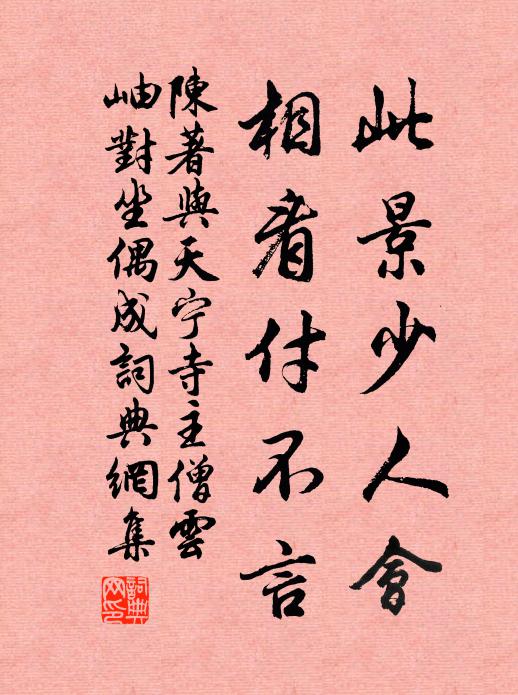 此景少人會
相看付不言
陳著與天宁寺主僧雲
岫對坐偶成詞典網集
詞典
网印